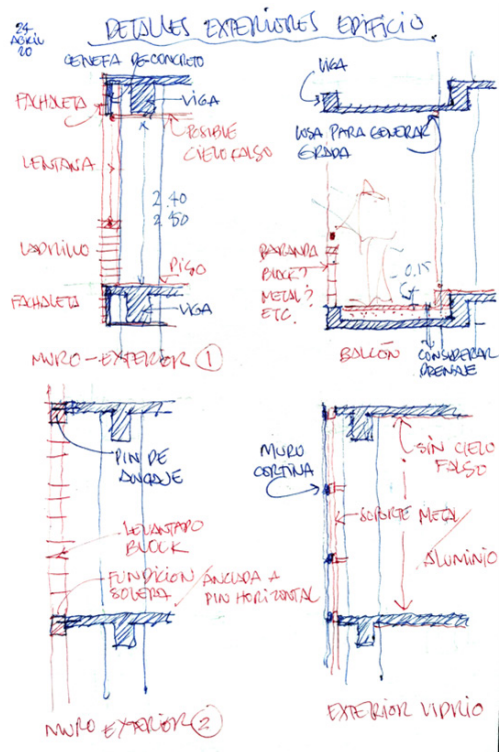 24
ABRIL
20
DETALLES EXTERIORES EDIFICIO
CENEFA DE CONCRETO
FACHALETA
VIGA
POSIBLE
CIELO FALSO
VENTANA
2.40
2.50
LADRILLO
PISO
FACHALETA
VIGA
MURO-EXTERIOR 1
VIGA
LOSA PARA GENERAR
GRADA
BARANDA
BLOCK?
METAL?
ETC.
0.15
BALCÓN
CONSIDERAR
DRENAJE
PIN DE
ANCLAJE
LEVANTADO
BLOCK
FUNDICION
SOLERA
ANCLADA A
PIN HORIZONTAL
MURO EXTERIOR 2
MURO
CORTINA
SIN CIELO
FALSO
SOPORTE METAL
ALUMINIO
EXTERIOR VIDRIO